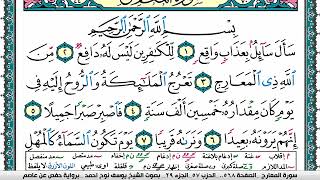 بِسْمِ ٱللَّهِ ٱلرَّحْمَٰنِ ٱلرَّحِيمِ
سَأَلَ سَآئِلٌۢ بِعَذَابٍ وَاقِعٍ ۝١ لِّلْكَٰفِرِينَ لَيْسَ لَهُۥ دَافِعٌ ۝٢ مِّنَ
ٱللَّهِ ذِى ٱلْمَعَارِجِ ۝٣ تَعْرُجُ ٱلْمَلَٰٓئِكَةُ وَٱلرُّوحُ إِلَيْهِ فِى
يَوْمٍ كَانَ مِقْدَارُهُۥ خَمْسِينَ أَلْفَ سَنَةٍ ۝٤ فَٱصْبِرْ صَبْرًا جَمِيلًا ۝٥
إِنَّهُمْ يَرَوْنَهُۥ بَعِيدًا ۝٦ وَنَرَىٰهُ قَرِيبًا ۝٧ يَوْمَ تَكُونُ ٱلسَّمَآءُ كَٱلْمُهْلِ
سورة المعارج الصفحة ٥٦٨ الحزب ٥٧ الجزء ٢٩ بصوت الشيخ يوسف نوح احمد برواية حفص عن عاصم